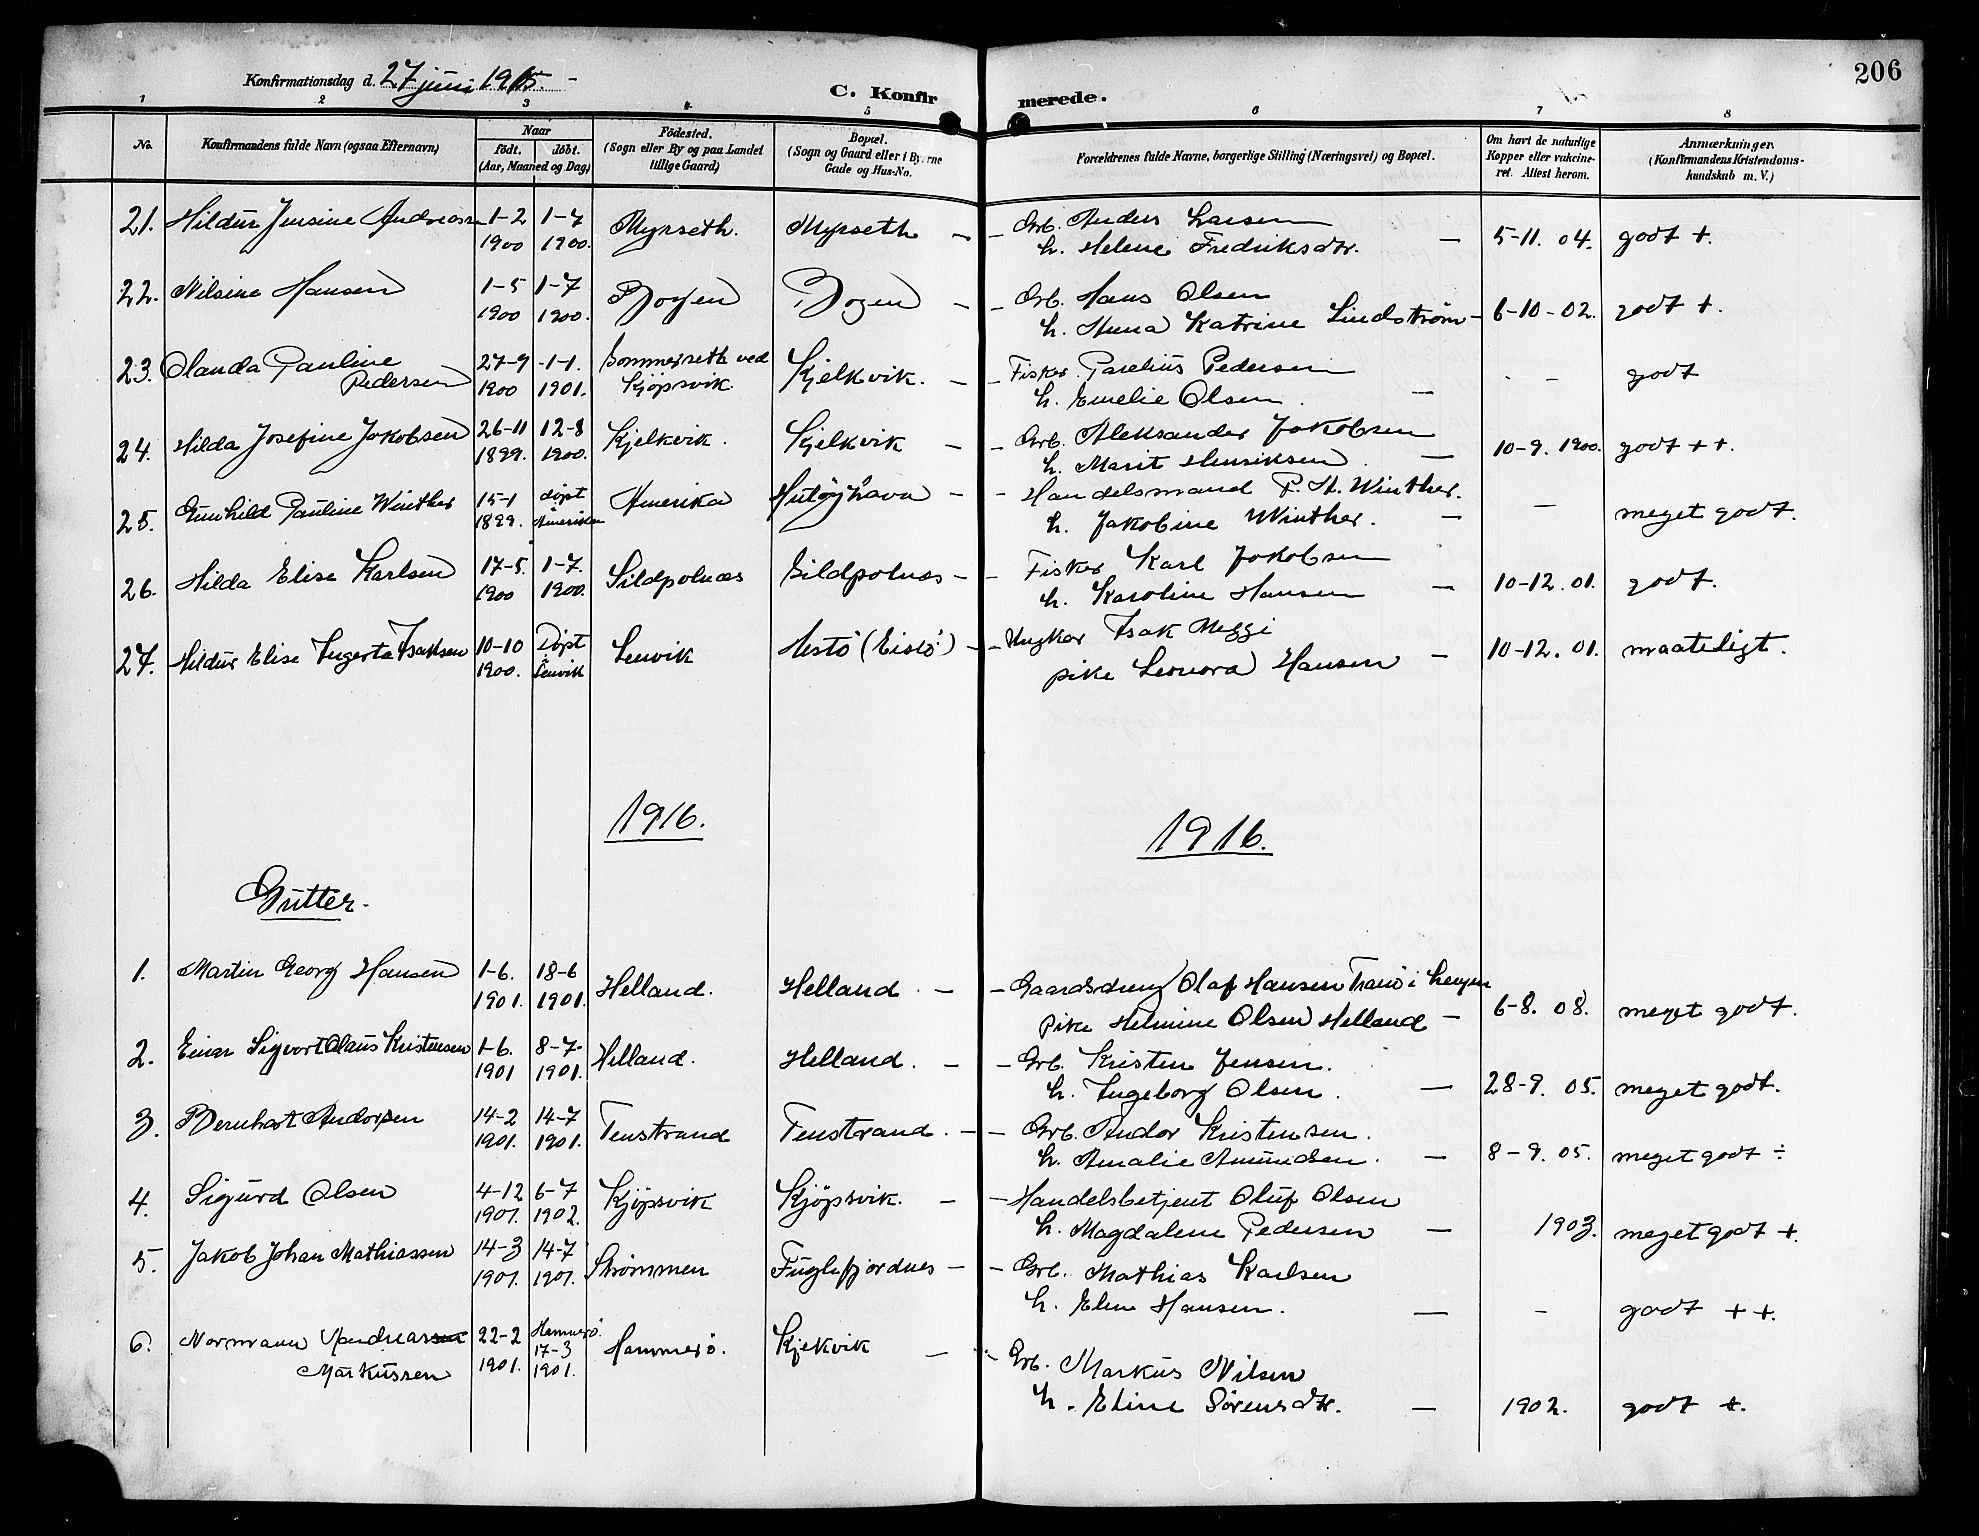 Konfirmationsdag d. 27 juni 1915.
C. Konfirmerede.
206
1 2 3 4 5 6 7 8
No.
Konfirmandens fulde Navn (ogsaa Efternavn)
Naar
født. døbt.
(Aar, Maaned og Dag)
Födested.
(Sogn eller By og paa Landet
tillige Gaard)
Bopæl.
(Sogn og Gaard eller i Byerne
Gade og Hus-No.
Forældrenes fulde Navne, borgerlige Stilling (Næringsvei) og Bopæl.
Om havt de naturlige
Kopper eller vakcine-
ret. Attest herom.
Anmærkninger.
(Konfirmandens Kristendoms-
kundskab m. V.)
21. Hildur Jensine Andreassen 1-2 1-7 Myrseth. Myrseth - - Grb. Anders Larsen
1900 1900. h. Helene Fredriksdtr. - 5-11. 04. godt +.
22. Nilsine Hansen 1-5 1-7 Bogen Bogen - - Grb. Hans Olsen
1900 1900. h. Anna Katrine Lindstrøm - 6-10-02. godt +.
23. Olanda Pauline 27-9 -1-1. Sommerseth ved Kjelkvik. - - Fisker. Parelius Pedersen
Pedersen 1900 1901. Kjøpsvik. h. Emelie Olsen. - - - godt
24. Hilda Josefine Jakobsen 26-11 12-8 Kjelkvik. Kjelkvik - - Grb. Aleksander Jakobsen
1899. 1900. h. Marit Henriksen. - 10-9. 1900. godt ++.
25. Gunhild Pauline Winther 15-1 døpt Amerika - - Handelsmand P. H. Winther.
1899. Amerika h. Jakobine Winther. - - meget godt.
26. Hilda Elise Karlsen 17-5. 1-7. Sildpolnæs Sildpolnæs - - Fisker Karl Jakobsen
1900 1900. h. Karoline Hansen - 10-12. 01. godt.
27. Hildur Elise Ingerta Isaksen 10-10 Døpt Lenvik - - Ungkar Isak Meggi
1900. Lenvik pike Leonora Hansen - 10-12. 01. maateligt.
1916. 1916.
Gutter.
1. Martin Georg Hansen 1-6. 18-6 Helland. Helland. - - Gaardsdreng Olaf Hansen Tranö i
1901. 1901. pike Helmine Olsen Helland - 6-8. 08. meget godt.
2. Einar Sigvart Olaus Kristensen 1-6. 8-7. Helland. Helland. - - Grb. Kristen Jensen.
1901 1901. h. Ingeborg Olsen. - 28-9. 05. meget godt.
3. Bernhart Andorsen 14-2 14-7 Tenstrand Tenstrand. - - Grb. Andor Kristensen.
1901. 1901. h. Amalie Amundsen. - 8-9. 05. meget godt ÷
4. Sigurd Olsen 4-12 6-7 Kjøpsvik Kjøpsvik. - - Handelsbetjent Oluf Olsen
1901. 1902. h. Magdalene Pedersen - 1903. meget godt +.
5. Jakob Johan Mathiassen 14-3 14-7 Strømmen Fuglefjordnes - - Grb. Mathias Karlsen
1901. 1901. h. Eline Hansen. - - godt ++.
6. Normann Andreassen 22-2 Hammerö. Hammerö. Kjelkvik - - Grb. Markus Nilsen
Markussen 1901. 17-3
1901. h. Eline Sørensdtr. - 1902. godt +.